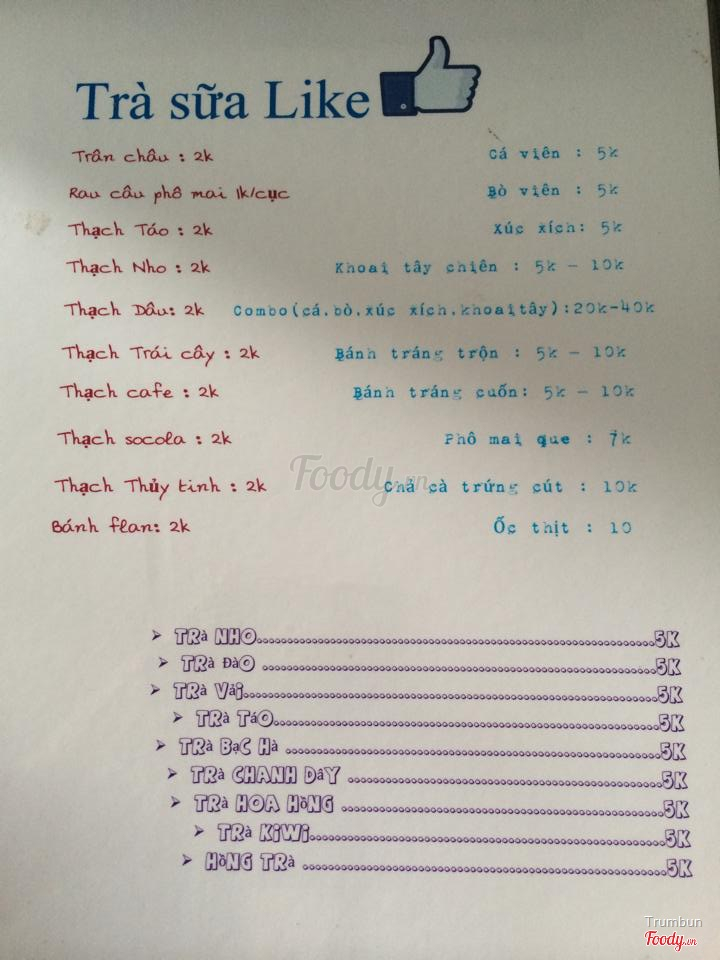 Trà sữa Like
Trân châu : 2k
Rau câu phô mai 1k/cục
Thạch Táo : 2k
Thạch Nho : 2k
Thạch Dâu: 2k
Thạch Trái cây : 2k
Thạch cafe : 2k
Thạch socola : 2k
Thạch Thủy tinh : 2k
Bánh flan: 2k
Cá viên : 5k
Bò viên : 5k
Xúc xích: 5k
Khoai tây chiên : 5k - 10k
Combo(cá,bò,xúc xích,khoai tây):20k-40k
Bánh tráng trộn : 5k - 10k
Bánh tráng cuốn: 5k - 10k
Phô mai que : 7k
Chả cà trứng cút : 10k
Ốc thịt : 10
Foody.vn
➢ TRà NHO..........5K
➢ TRà ĐàO ..........5K
➢ TRà Vải..........5K
➢ TRà TáO..........5K
➢ TRà BạC Hà ..........5K
➢ TRà CHANH DâY ..........5K
➢ TRà HOA HồNG ..........5K
➢ TRà KiWi..........5K
➢ HồNG TRà ..........5K
Trumbun
Foody.vn